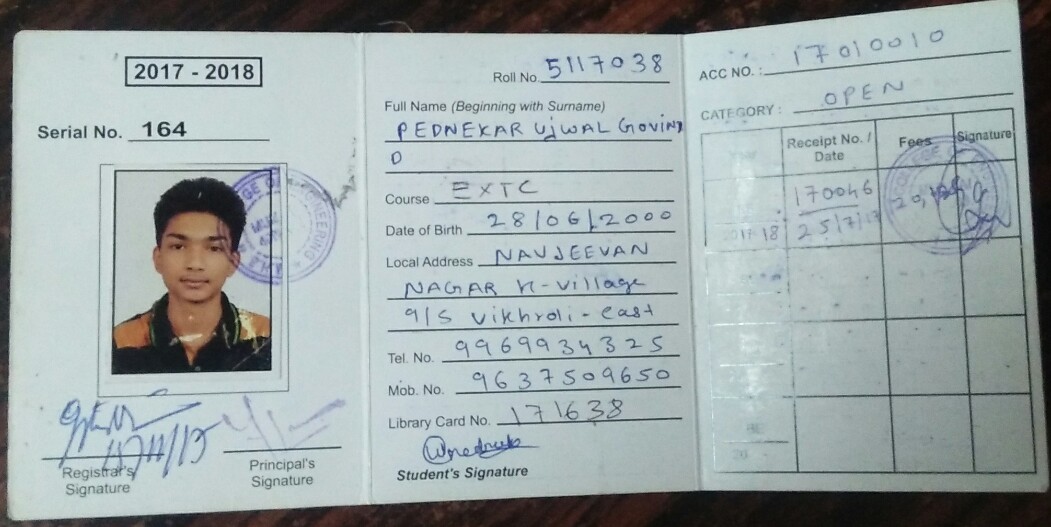 2017 - 2018
Serial No. 164
COLLEGE OF ENGINEERING
Registrar's
Signature
Principal's
Signature
Roll No. 5117038
Full Name (Beginning with Surname)
PEDNEKAR UJWAL GOVIN
D
Course EXTC
Date of Birth 28/06/2000
Local Address NAVJEEVAN
NAGAR K-Village
9/5 Vikhroli-east
Tel. No. 9969934325
Mob. No. 9637509650
Library Card No. 171638
Student's Signature
ACC NO. : 17010010
CATEGORY : OPEN
Receipt No. /
Date
Fees
Signature
170046
25/7/17